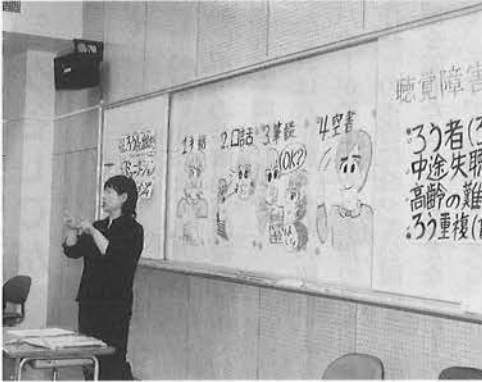 1.手話
2.口話
3.筆談
4.空書
OK?
聴覚障害
・ろう者(ろ
・中途失聴
・高齢の難
・ろう重複(